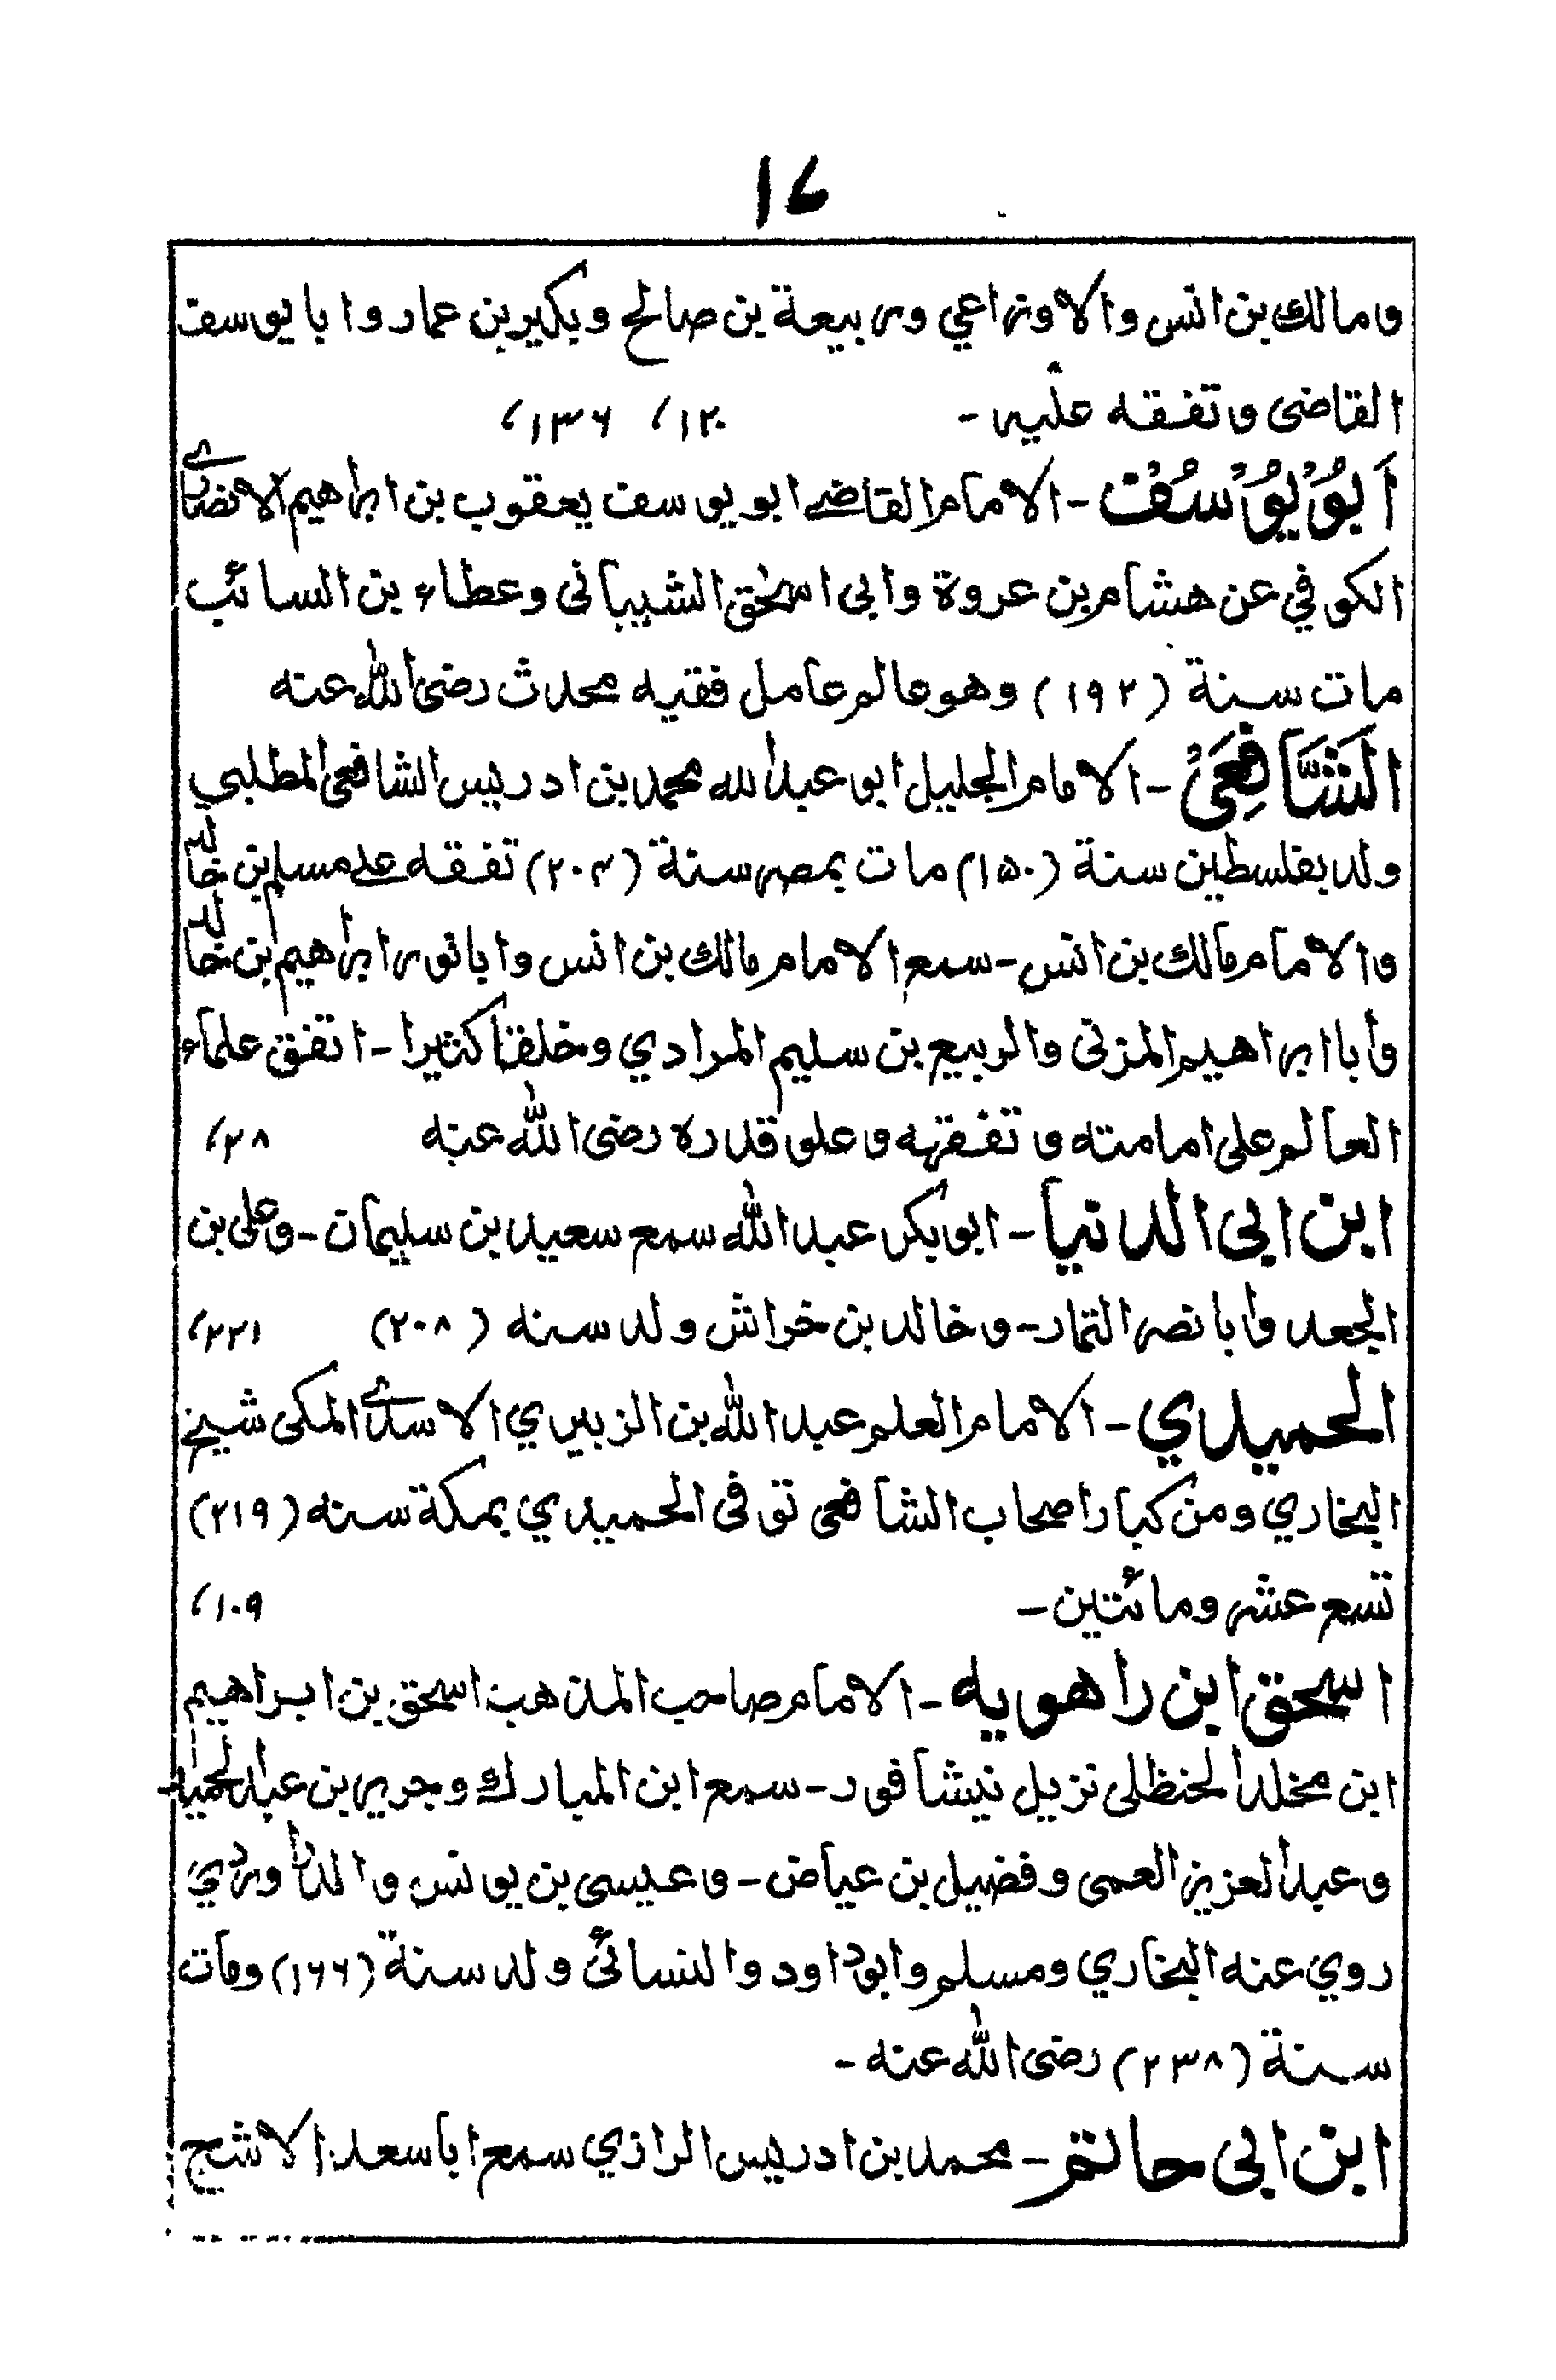 ۱۶
ومالك بن انس والاوزاعي وربيعة بن صالح وبكير بن عمار وابا يوسف
القاضى وتفقه عليه - ۱۲۰، ۱۳۶،
اَبُوْيُوْسُفْ - الامام القاضے ابو يوسف يعقوب بن ابراهيم الانصارے
الكوفي عن هشام بن عروة وابى اسحٰق الشيبانى وعطاء بن السائب
مات سنة (۱۹۲) وهو عالم عامل فقيه محدث رضى الله عنه
الشَّافِعَىْ - الامام الجليل ابو عبد الله محمد بن ادريس الشافعى المطلبي
ولد بفلسطين سنة (۱۵۰) مات بمصر سنة (۲۰۴) تفقه علے مسلم بن خالد
والامام مالك بن انس - سمع الامام مالك بن انس وابا ثور ابراهيم بن خالد
وأبا ابراهيم المزنى والربيع بن سليم المرادي وخلقا كثيرا - اتفق علماء
العالم على امامته وتفقهه وعلو قدره رضى الله عنه ۲۸،
ابن ابى الدنيا - ابو بكر عبد الله سمع سعيد بن سليمان - وعلى بن
الجعد وأبا نصر التمار - وخالد بن خراش ولد سنه (۲۰۸) ۲۲۱،
الحميدي - الامام العلم عبد الله بن الزبيري الاسدے المكى شيخ
البخاري ومن كبار اصحاب الشافعى توفى الحميدي بمكة سنه (۲۱۹)
تسع عشر ومائتين - ۱۰۹،
اسحق ابن راهويه - الامام صاحب المذهب اسحق بن ابراهيم
ابن مخلد الحنظلى نزيل نيشافور - سمع ابن المبارك وجرير بن عبد الحميد -
وعبد العزيز العمى وفضيل بن عياض - وعيسى بن يونس والدراوردي
روي عنه البخاري ومسلم وابوداود والنسائى ولد سنة (۱۶۶) ومات
سنة (۲۳۸) رضى الله عنه -
ابن ابى حاتم - محمد بن ادريس الرازي سمع ابا سعد الاشج